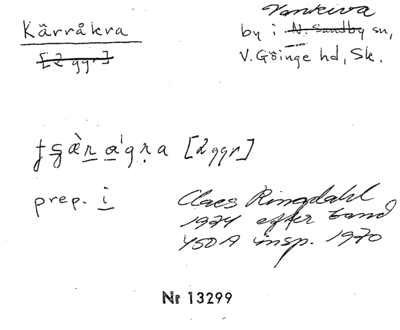 Kärråkra
[2 ggr]
Vankiva
by i N. Sandby sn,
V. Göinge hd, Sk.
[2 ggr]
prep. i
Claes Ringdahl
1974 efter band
450 A insp. 1970
Nr 13299